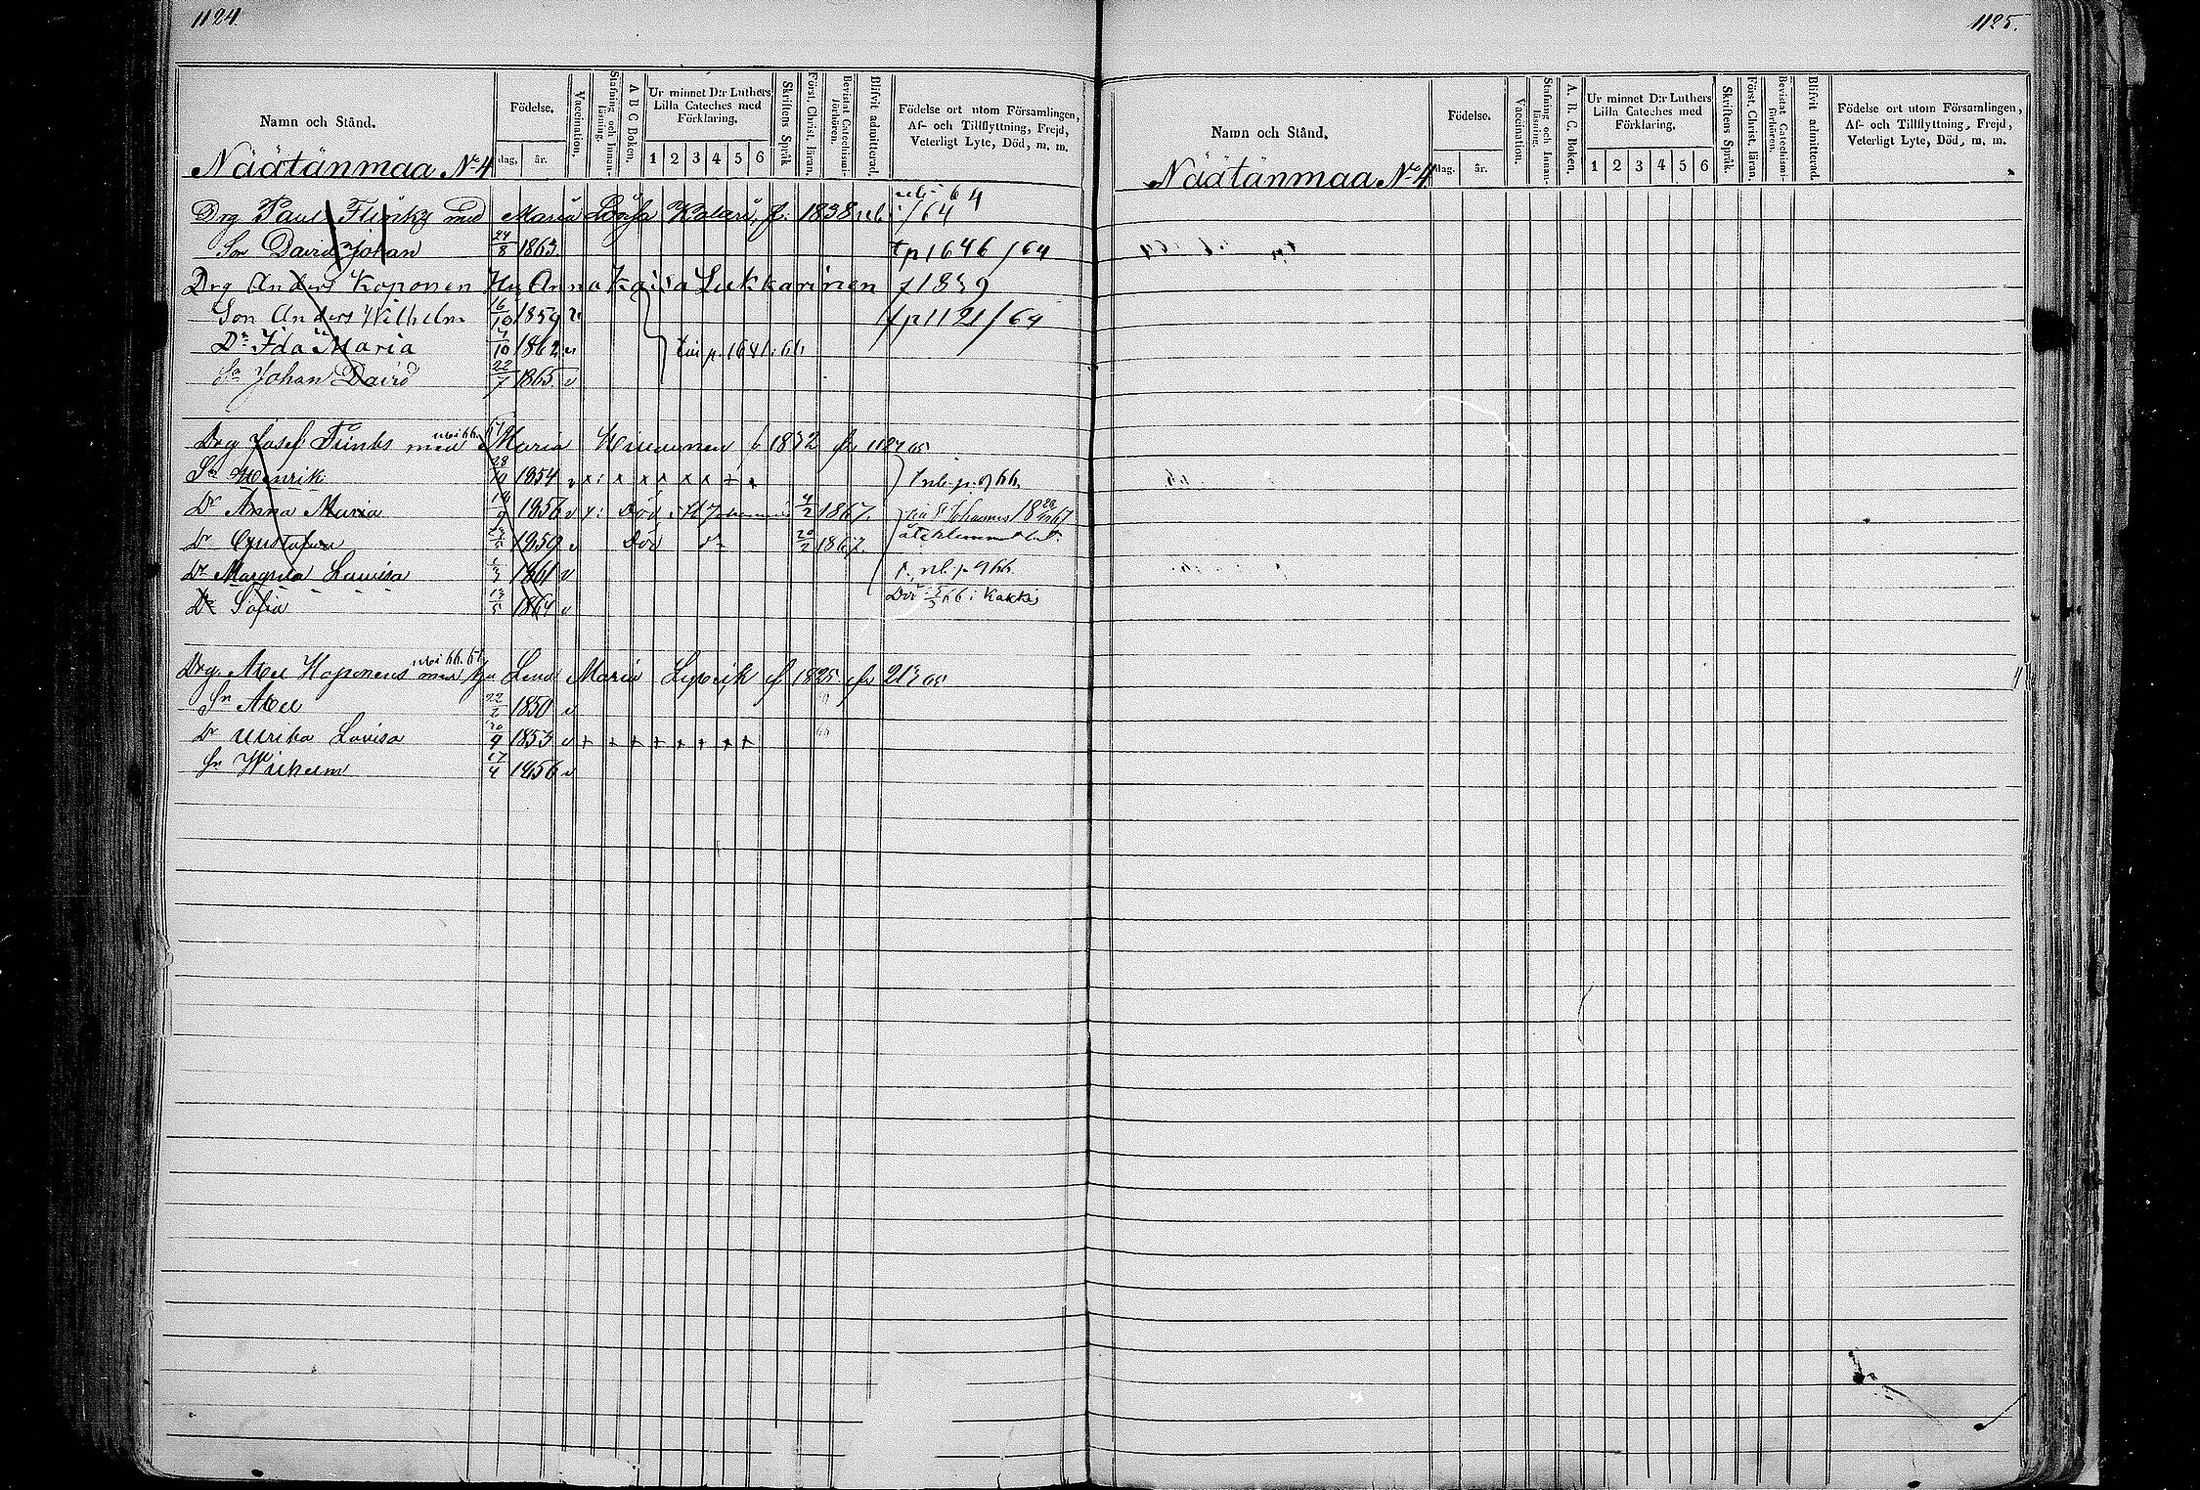 1124.
Namn och Stånd.
Födelse.
dag, år.
Vaccination.
Stafning och Innan-läsning.
A B C Boken.
Ur minnet D:r Luthers Lilla Cateches med Förklaring.
1 2 3 4 5 6
Skriftens Språk
Först. Christ. läran.
Bevistat Catechismi-förhören.
Blifvit admitterad.
Födelse ort utom Församlingen,
Af- och Tillflyttning, Frejd,
Veterligt Lyte, Död, m. m.
Näätänmaa No 4
64
Drg Paul med Maria Lovisa f. 1838 /64
Son David Johan 24/8 1863. tp 1646/64
Drg Anders Koponen Hu Anna Kaisa Lukkarinen f 1839
Son Anders Wilhelm 16/10 1859 v fp 1121/64
Dr Ida Maria 7/10 1862 v p. 1641. 66
Sn Johan David 22/7 1865. v
Drg Josef med Maria f 1832 fr 1127 65
Sn Henrik 28/10 1854 v
Dr Anna Maria 1856 v Död i St Johannis 4/2 1867. St Johannes 67
Dr Gustafva 1859 v Död 20/2 1867.
Dr Margreta Lovisa 1861 v
Dr Sofia 13/5 1864 v Död
Drg. Abel Koponens med Lena Maria f 1825 fr 213 65
Sn Abel 22/2 1850 v
Dr Ulrika Lovisa 20/9 1853 v + + + + + + + +
Sn Wilhelm 17/4 1856 v
1125.
Namn och Stånd.
Födelse.
dag. år.
Vaccination.
Stafning och Innan-läsning.
A. B. C. Boken.
Ur minnet D:r Luthers Lilla Cateches med Förklaring.
1 2 3 4 5 6
Skriftens Språk.
Först. Christ. läran.
Bevistat Catechismi-förhören.
Blifvit admitterad.
Födelse ort utom Församlingen,
Af- och Tillflyttning, Frejd,
Veterligt Lyte, Död, m. m.
Näätänmaa No 4